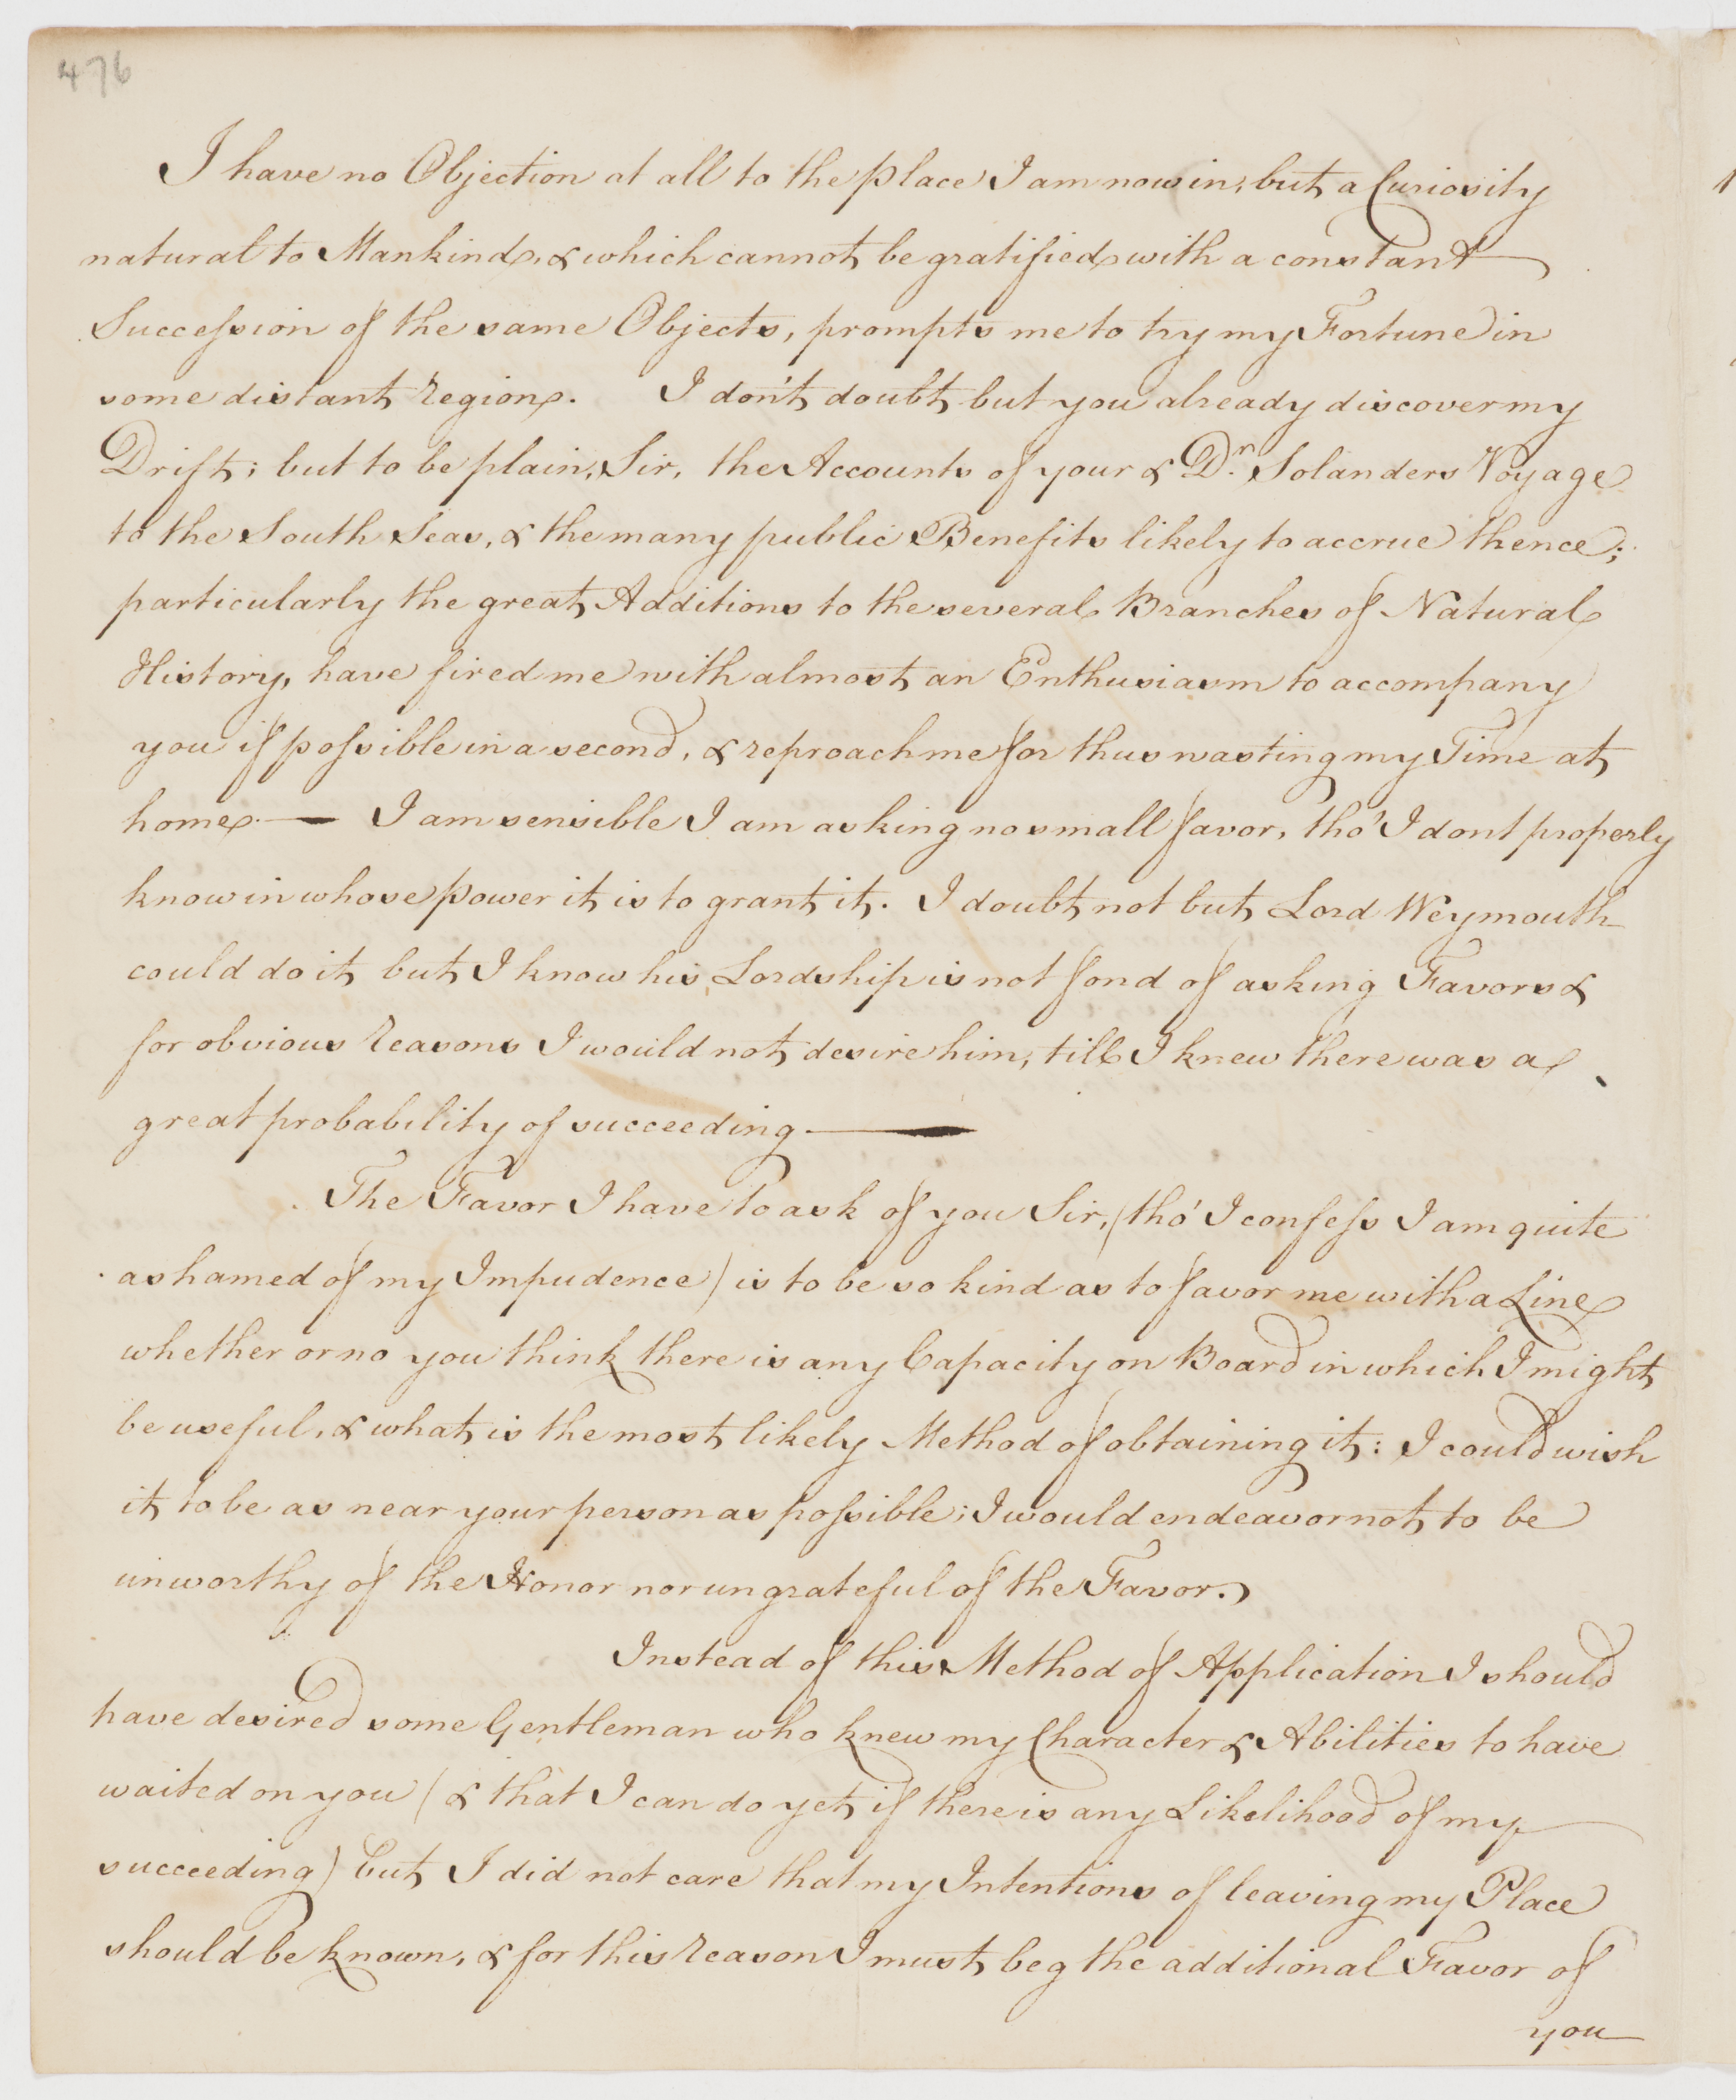 476
I have no Objection at all to the place I am now in, but a Curiosity
natural to Mankind, & which cannot be gratified with a constant
Succession of the same Objects, prompts me to try my Fortune in
some distant Region. I don't doubt but you already discover my
Drift; but to be plain, Sir, the Accounts of your & Dr. Solanders Voyage
to the South Seas, & the many public Benefits likely to accrue thence;
particularly the great Additions to the several Branches of Natural
History, have fired me with almost an Enthusiasm to accompany
you if possible in a second, & reproach me for thus wasting my Time at
home. — I am sensible I am asking no small favor, tho' I dont properly
know in whose power it is to grant it. I doubt not but Lord Weymouth
could do it but I know his Lordship is not fond of asking Favors &
for obvious reasons I would not desire him, till I knew there was a
great probability of succeeding. —
The Favor I have to ask of you Sir, (tho' I confess I am quite
ashamed of my Impudence) is to be so kind as to favor me with a Line
whether or no you think there is any Capacity on Board in which I might
be useful, & what is the most likely Method of obtaining it: I could wish
it to be as near your person as possible; I would endeavor not to be
unworthy of the Honor nor ungrateful of the Favor.
Instead of this Method of Application I should
have desired some Gentleman who knew my Character & Abilities to have
waited on you (& that I can do yet if there is any Likelihood of my
succeeding) but I did not care that my Intentions of leaving my Place
should be known, & for this reason I must beg the additional Favor of
you